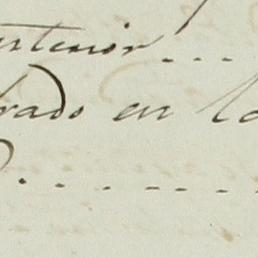 terior . . . .
rado en la
. . . . . . . .